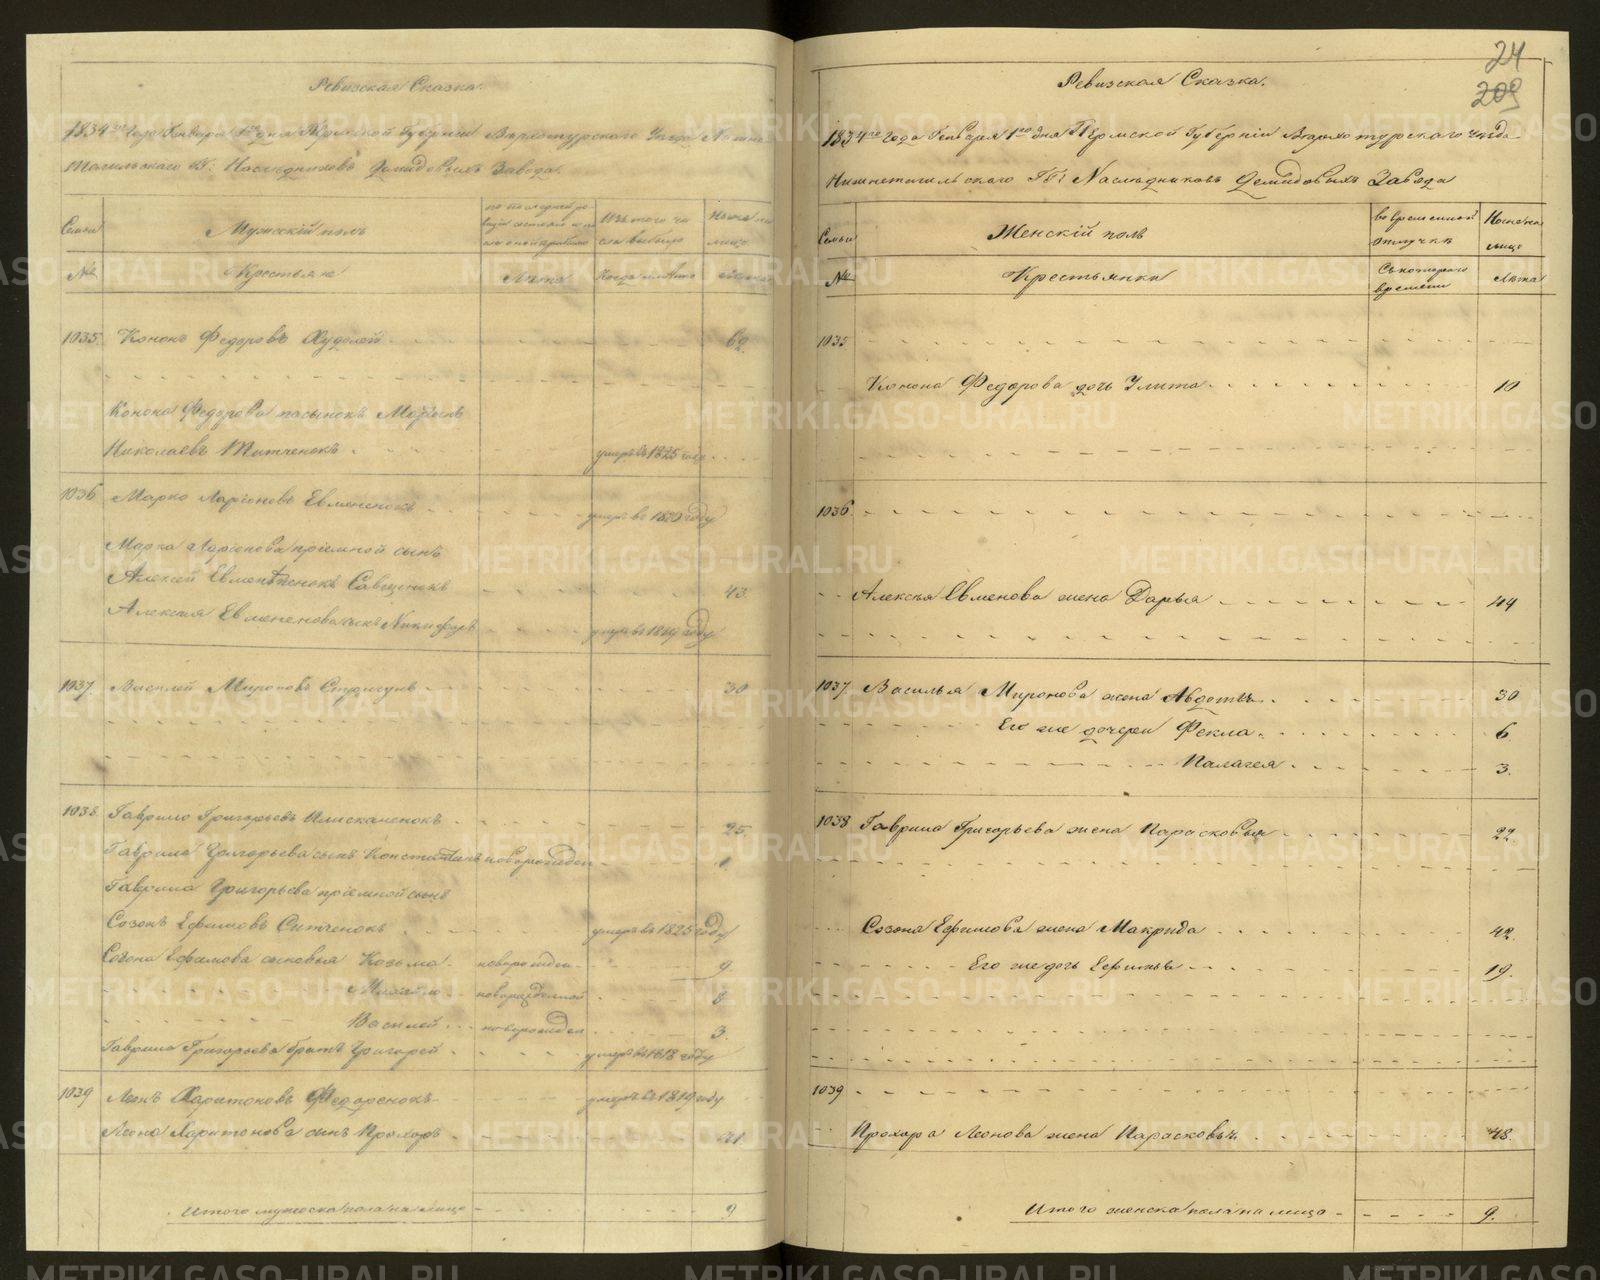 Ревизская Сказка.
1834го Года Генваря 1го дня Пермской Губернии Верхотурскаго Уезда Нижне
Тагильскаго Гг: Наследниковъ Демидовыхъ Завода.
Семьи
Мужескій полъ
по последней ре
визіи состояло и по
сле оной прибыло
Изъ того чи
сла выбыло
Ныне на
лицо
№
Крестьяне
Лета
Когда именно
Лета
1035. Кононъ Федоровъ Худолей 62.
Конона Федорова пасынокъ
Николаевъ Титченокъ умеръ въ 1825 году
1036 Марко Ларіоновъ Евмененокъ умеръ въ 1820 году
Марка Ларіонова пріемной сынъ
Алексей Савченокъ 43.
Алексея Евменова сынъ Никифоръ умеръ въ 1819 году
1037. Василей Мироновъ Стригунъ 30
1038. Гаврило Григорьевъ 25.
Гаврила Григорьева сынъ Константинъ новорожден 1
Гаврила Григорьева пріемной сынъ
Созонъ Ефимовъ Ситченокъ умеръ въ 1825 году
Созона Ефимова сыновья Козьма новорожден 9
Михайло новорожденной 8
Василей новорожден 3.
Гаврила Григорьева братъ Григорей умеръ въ 1818 году
1039 Леонъ Харитоновъ Федоренокъ умеръ въ 1819 году
Леона Харитонова сынъ Прохоръ 41
Итого мужеска пола на лицо 9
24
209
Ревизская Сказка.
1834го года Генваря 1го дня Пермской Губерніи Верхотурскаго уезда
Нижнетагильскаго Гг: Наследниковъ Демидовыхъ Завода
Семьи
Женскій полъ
во временной
отлучке
Ныне на
лицо
№
Крестьянки
Съ котораго
времени
Лета
1035.
Конона Федорова дочь Улита 10
1036.
Алексея Евменова жена Дарья 44
1037. Василья Миронова жена Авдотья 30
Его же дочери Фекла 6
Палагея 3.
1038 Гаврила Григорьева жена Парасковья 22
Созона Ефимова жена Макрида 42.
Его же дочь Ефимья 19.
1039
Прохора Леонова жена Парасковья 48.
Итого женска пола на лицо 9.
METRIKI.GASO-URAL.RU